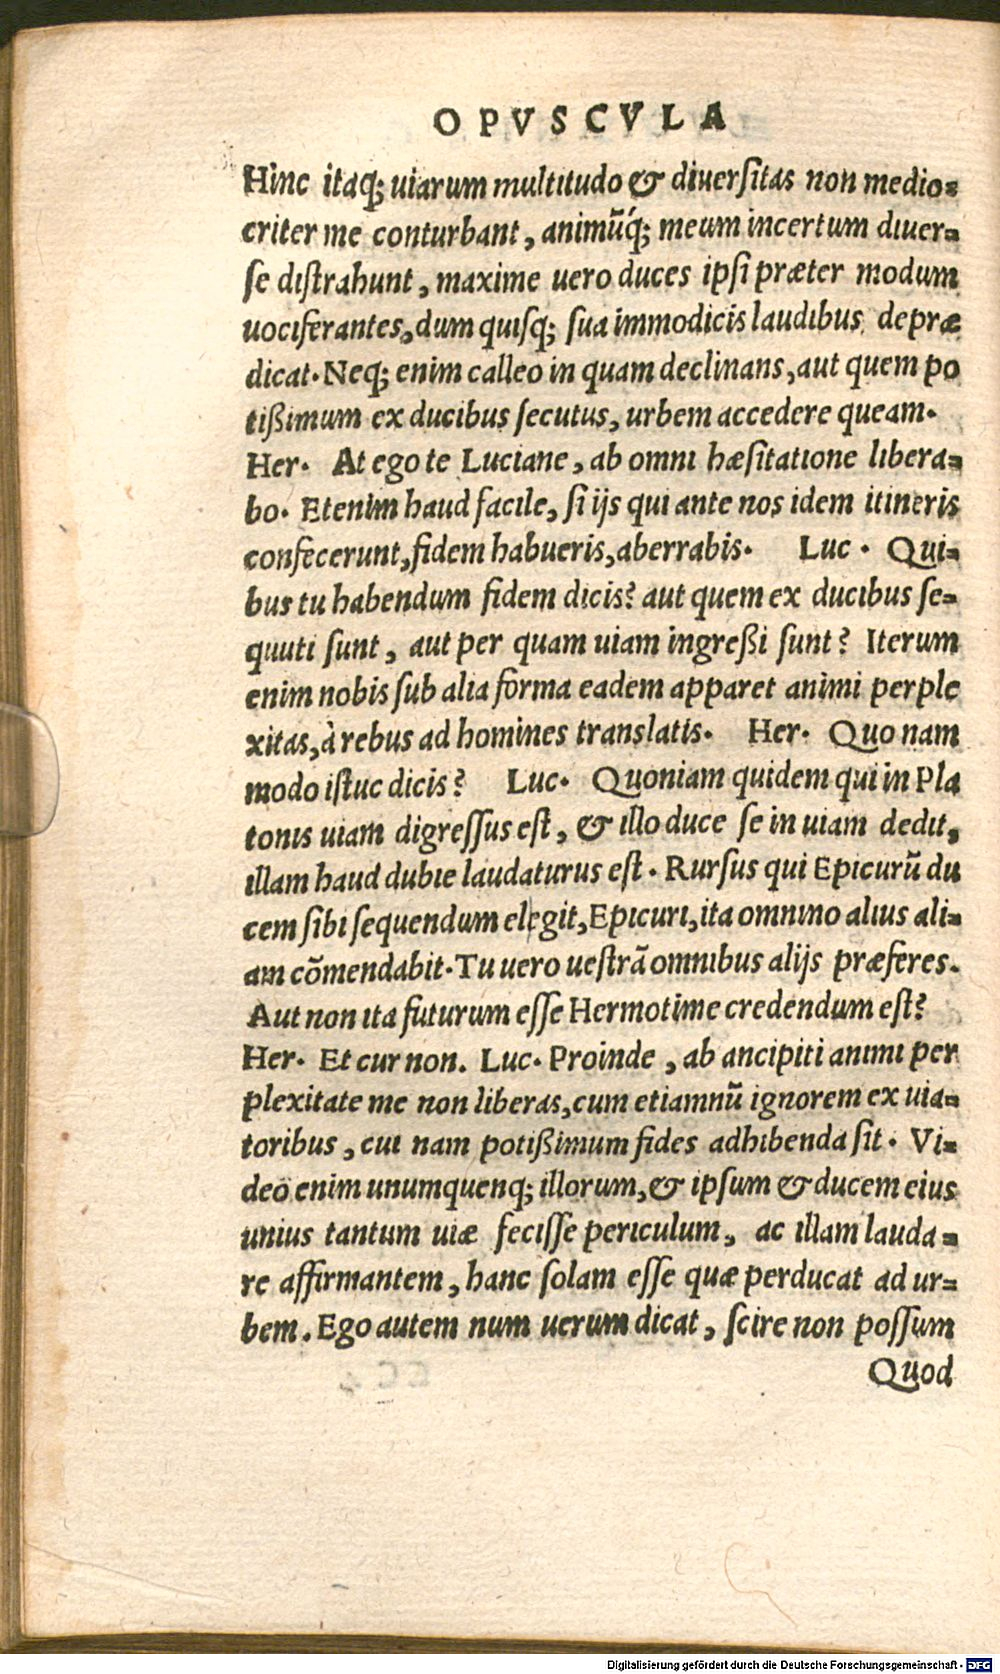 OPVSCVLA
Hinc itaq; uiarum multitudo & diuerſitas non medio=
criter me conturbant, animũq́; meum incertum diuer=
ſe diſtrahunt, maxime uero duces ipſi præter modum
uociferantes, dum quiſq; ſua immodicis laudibus depræ
dicat. Neq; enim calleo in quam declinans, aut quem po
tißimum ex ducibus ſecutus, urbem accedere queam.
Her. At ego te Luciane, ab omni hæſitatione libera=
bo. Etenim haud facile, ſi ijs qui ante nos idem itineris
confecerunt, fidem habueris, aberrabis. Luc. Qui=
bus tu habendum fidem dicis? aut quem ex ducibus ſe=
quuti ſunt, aut per quam uiam ingreßi ſunt? Iterum
enim nobis ſub alia forma eadem apparet animi perple
xitas, à rebus ad homines translatis. Her. Quo nam
modo iſtuc dicis? Luc. Quoniam quidem qui in Pla
tonis uiam digreſſus eſt, & illo duce ſe in uiam dedit,
illam haud dubie laudaturus eſt. Rurſus qui Epicurũ du
cem ſibi ſequendum elegit, Epicuri, ita omnino alius ali=
am cõmendabit. Tu uero ueſtrã omnibus alijs præferes.
Aut non ita futurum eſſe Hermotime credendum eſt?
Her. Et cur non. Luc. Proinde, ab ancipiti animi per
plexitate me non liberas, cum etiamnũ ignorem ex uia=
toribus, cui nam potißimum fides adhibenda ſit. Vi=
deo enim unumquenq; illorum, & ipſum & ducem eius
unius tantum uiæ feciſſe periculum, ac illam lauda=
re affirmantem, hanc ſolam eſſe quæ perducat ad ur=
bem. Ego autem num uerum dicat, ſcire non poſſum
Quod
Digitalisierung gefördert durch die Deutsche Forschungsgemeinschaft - DFG